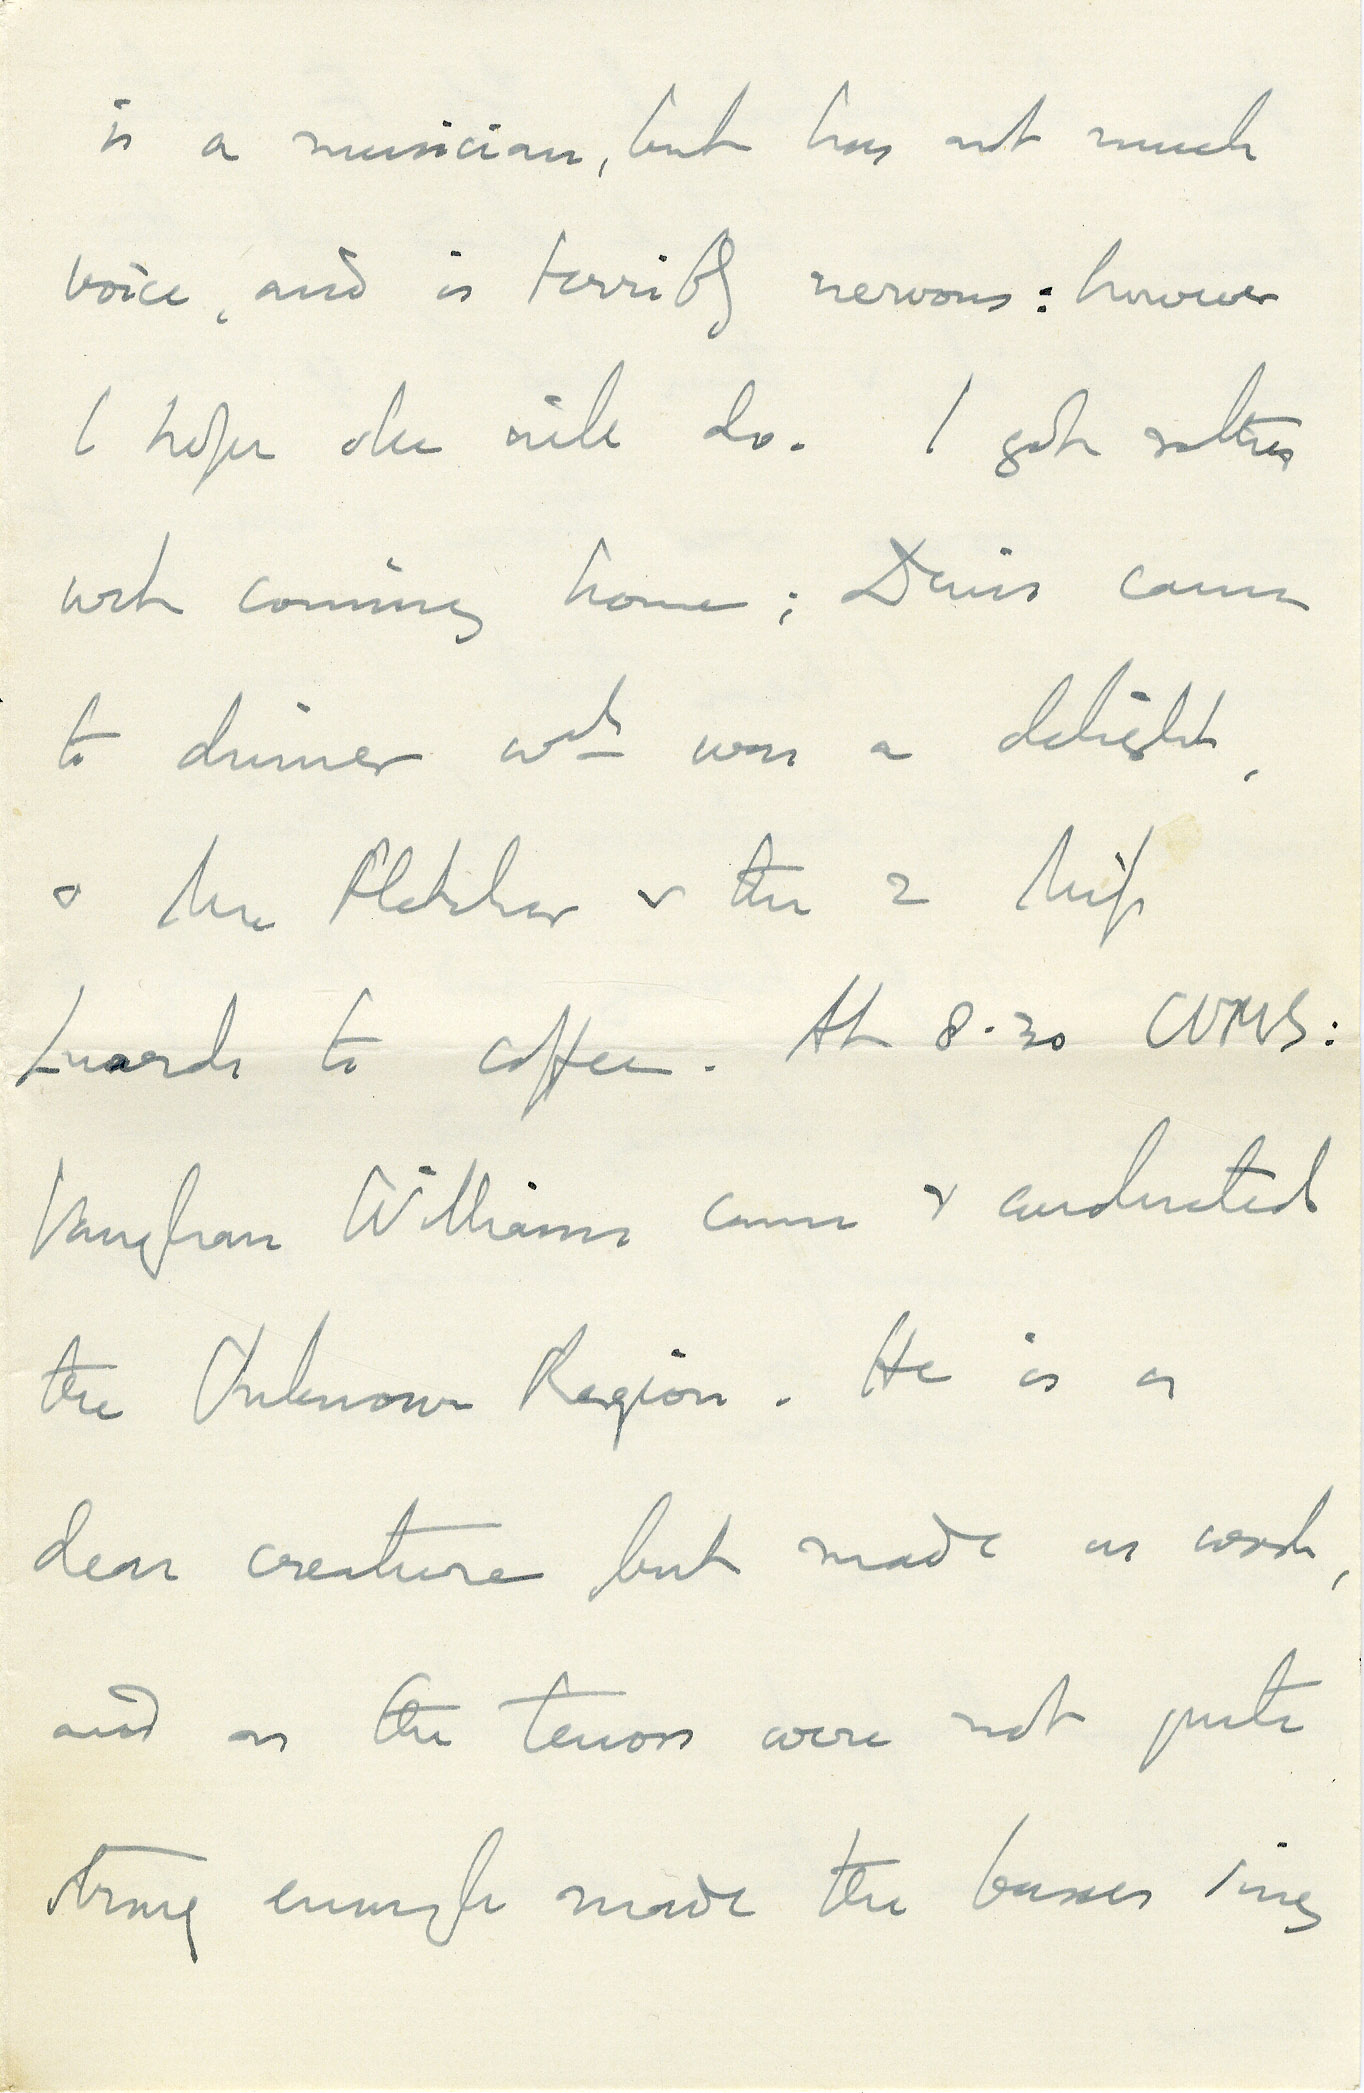 is a musician, but has not much
voice, and is terribly nervous: however
I hope she will do. I got rather
wet coming home; Denis came
to dinner wch was a delight,
& Mrs Fletcher & the 2 Miss
Luards to coffee. At 8.30 CUMS:
Vaughan Williams came & conducted
the Unknown Region. He is a
dear creature but made us work,
and as the tenors were not quite
strong enough made the basses sing